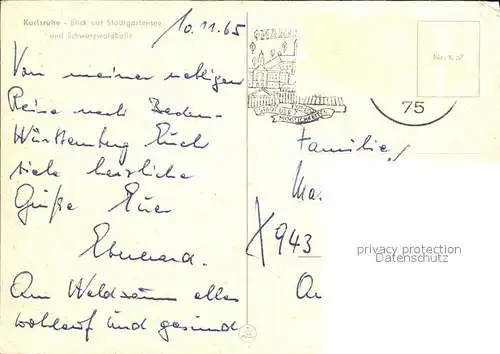 Karlsruhe - Blick auf Stadtgartensee
und Schwarzwaldhalle
10.11.65
Von meiner
Reise nach Baden-
Württemberg Euch
viele herzliche
Grüße Euer
Eberhard.
Am Waldsaum alles
wohlauf und gesund
75
Familie
Ma
X943
privacy protection
Datenschutz